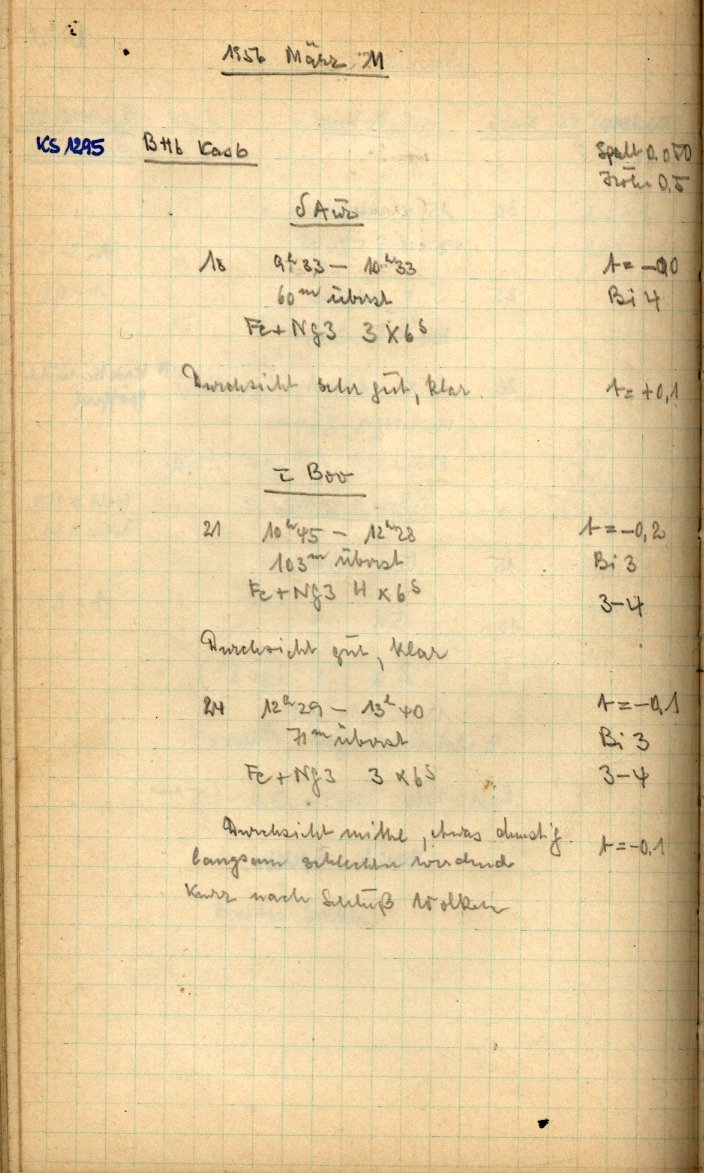 1956 März 11
KS 1295 BHb Kasb Spalt 0.050
Höhe 0,5
δ Aur
18 9h33 – 10h33 t = –0,0
60m überst Bi 4
Fe + Ng3 3 x 6s
Durchsicht sehr gut, klar t = +0,1
τ Boo
21 10h45 – 12h28 t = –0,2
103m überst Bi 3
Fe + Ng3 4 x 6s 3–4
Durchsicht gut, klar
24 12h29 – 13h40 t = –0,1
71m überst Bi 3
Fe + Ng3 3 x 6s 3–4
Durchsicht mittel, etwas dunstig t = –0,1
langsam schlechter werdend
Kurz nach Schluß Wolken